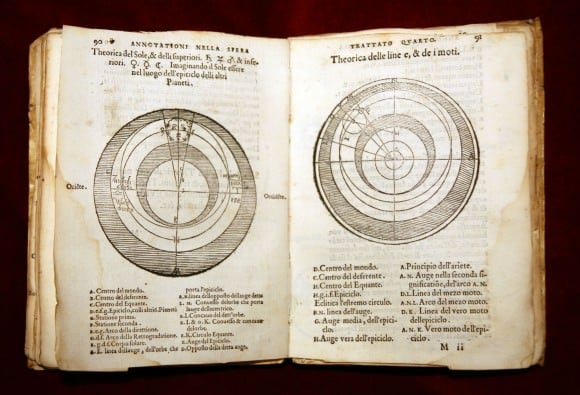 90 ANNOTATIONI NELLA SPERA
Theorica del Sole, & delli superiori. ♄ ♃ ♂ & infe-
riori. ♀ ☿ ☾. Imaginando il Sole essere
nel luogo dell'epiciclo delli altri
Pianeti.
Oriẽte.
Occidẽte.
A. Centro del mondo.
B. Centro del deferente.
C. Centro del Equante.
Epiciclo, cosi altri Pianeti
Statione prima.
Statione seconda.
Arco della direttione.
Arco della Retrogradatione.
Corpo solare.
linea dell'auge, dell'orbe, che
porta l'epiciclo.
linea dell'opposito dell'auge
L. M. Conuesso dell'orbe che porta
l'auge dell'eccentrico.
Concauo del dett'orbe.
I. & O. K. Conuesso & concauo
dell'orbe.
E. K. Circulo Equante.
Auge del Epiciclo.
Opposito della detta auge.
TRATTATO QVARTO. 91
Theorica delle line e, & de i moti.
D. Centro del mondo.
C. Centro del deferente.
H. Centro del Equante.
H. g. f. Epiciclo.
Eclitica l'estremo circulo.
linea dell'auge.
G. Auge media, dell'epici-
clo.
H. Auge vera dell'epiciclo.
A. Principio dell'ariete.
A. N. Auge nella seconda si
gnificatiõe, del'arco A. N.
D. L. Linea del mezo moto.
A. N. L. Arco del mezo moto.
D. K. Linea del vero moto
dell'epiciclo.
A. N. K. Vero moto dell'epi-
ciclo.
M ii